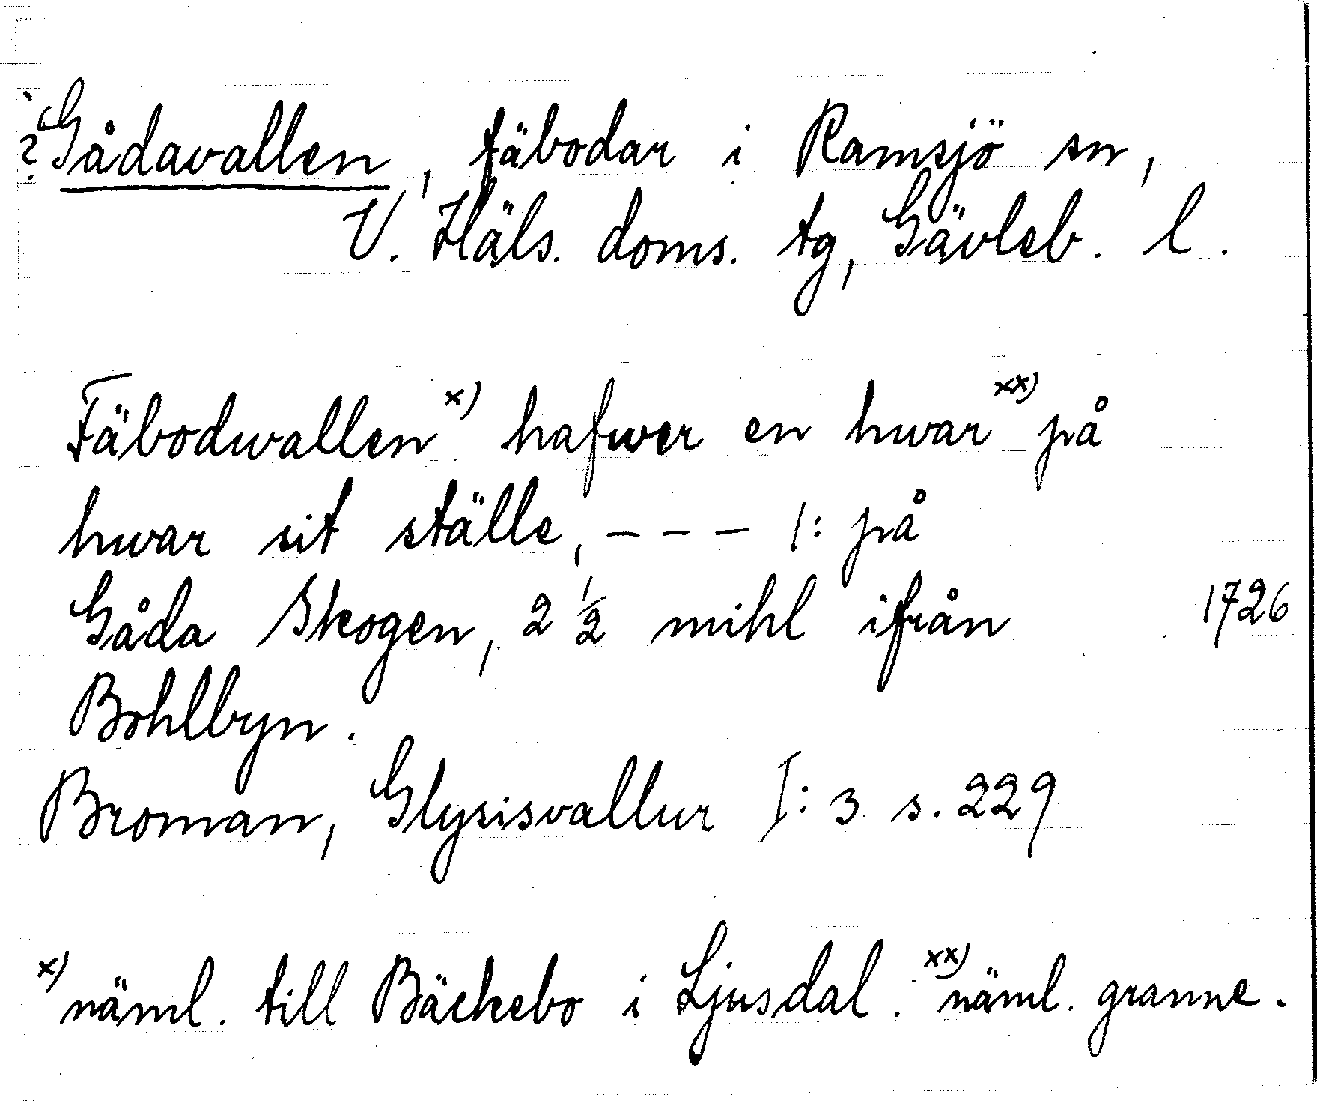 ? Gådavallen, fäbodar i Ramsjö sn,
V. Häls. doms. tg, Gävleb. l.
Fäbodwallen x) hafwer en hwar xx) på
hwar sit ställe, - - - 1: på
Gåda Skogen, 2 1/2 mihl ifrån 1726
Bohlbyn.
Broman, Glysisvallur I: 3 s. 229
x) näml. till Bäckebo i Ljusdal. xx) näml. granne.